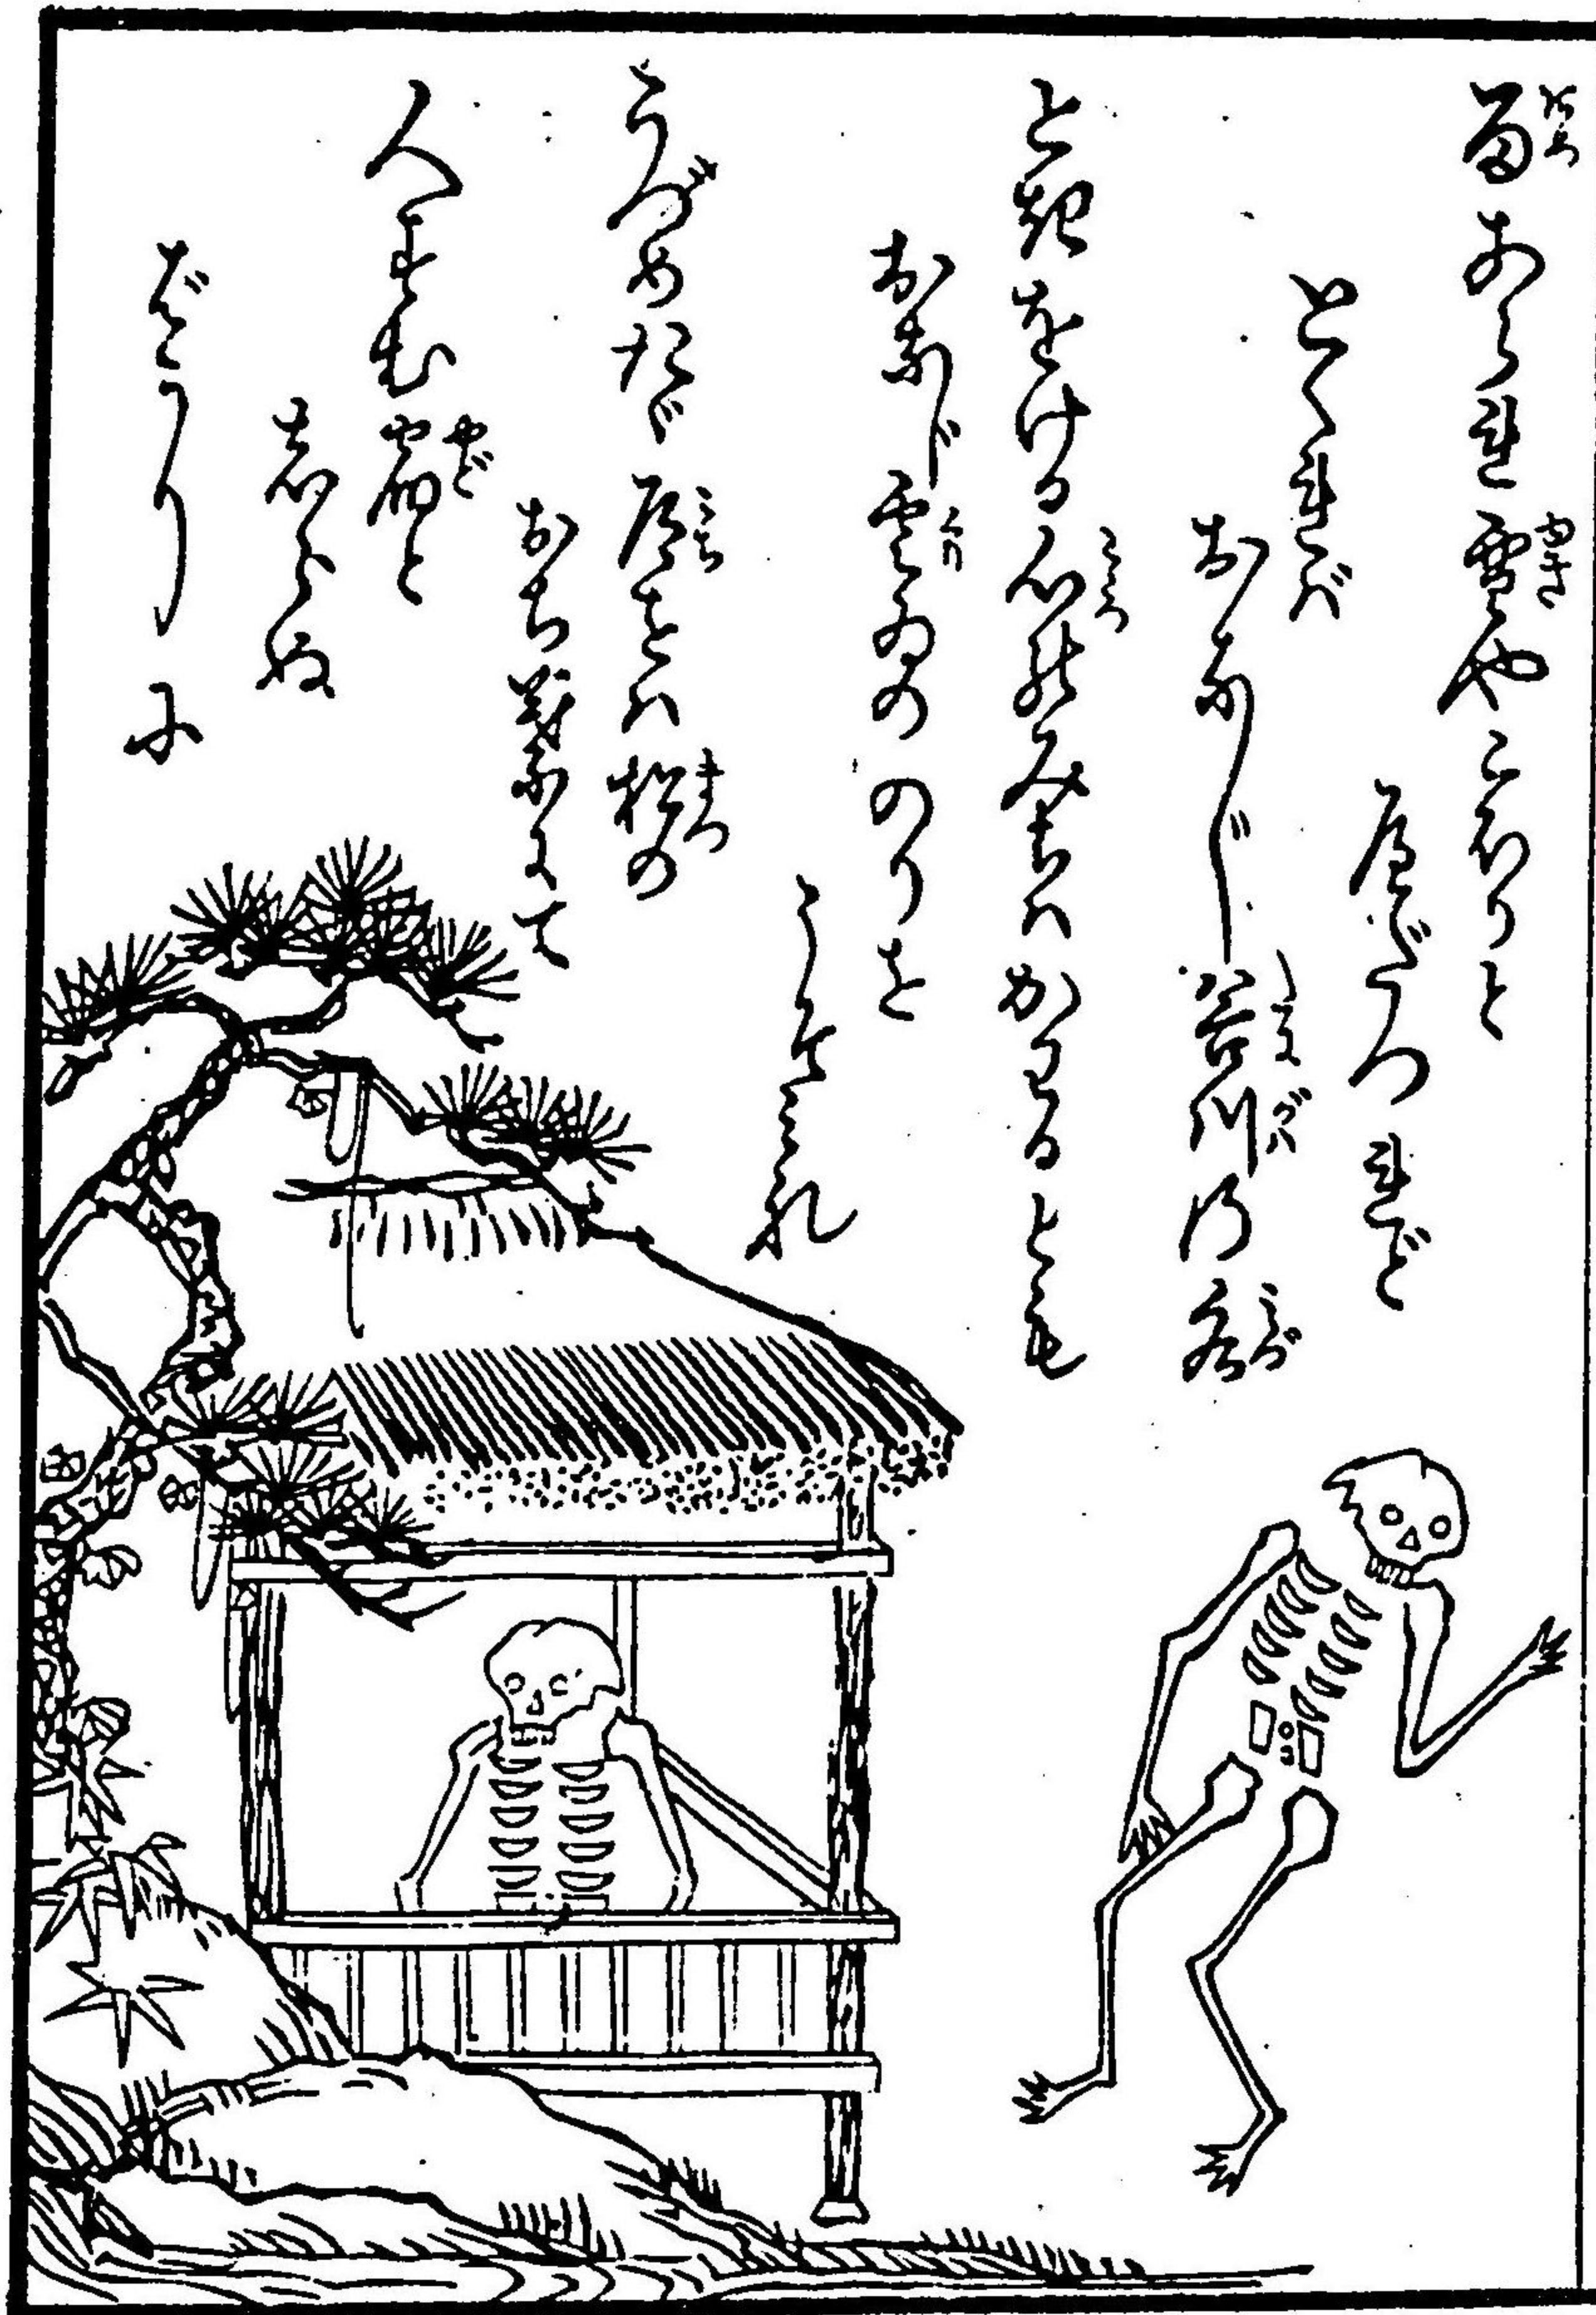 雨あられ雪やこほりと
へだつれど
とくれバ
おなじ谷川の水
ときをける心のみちハかわるとも
おなじ雲ゐののりを
こそみれ
うづめたゞ道をハ松の
おち葉にて
人すむ宿と
しらぬ
ばかりに